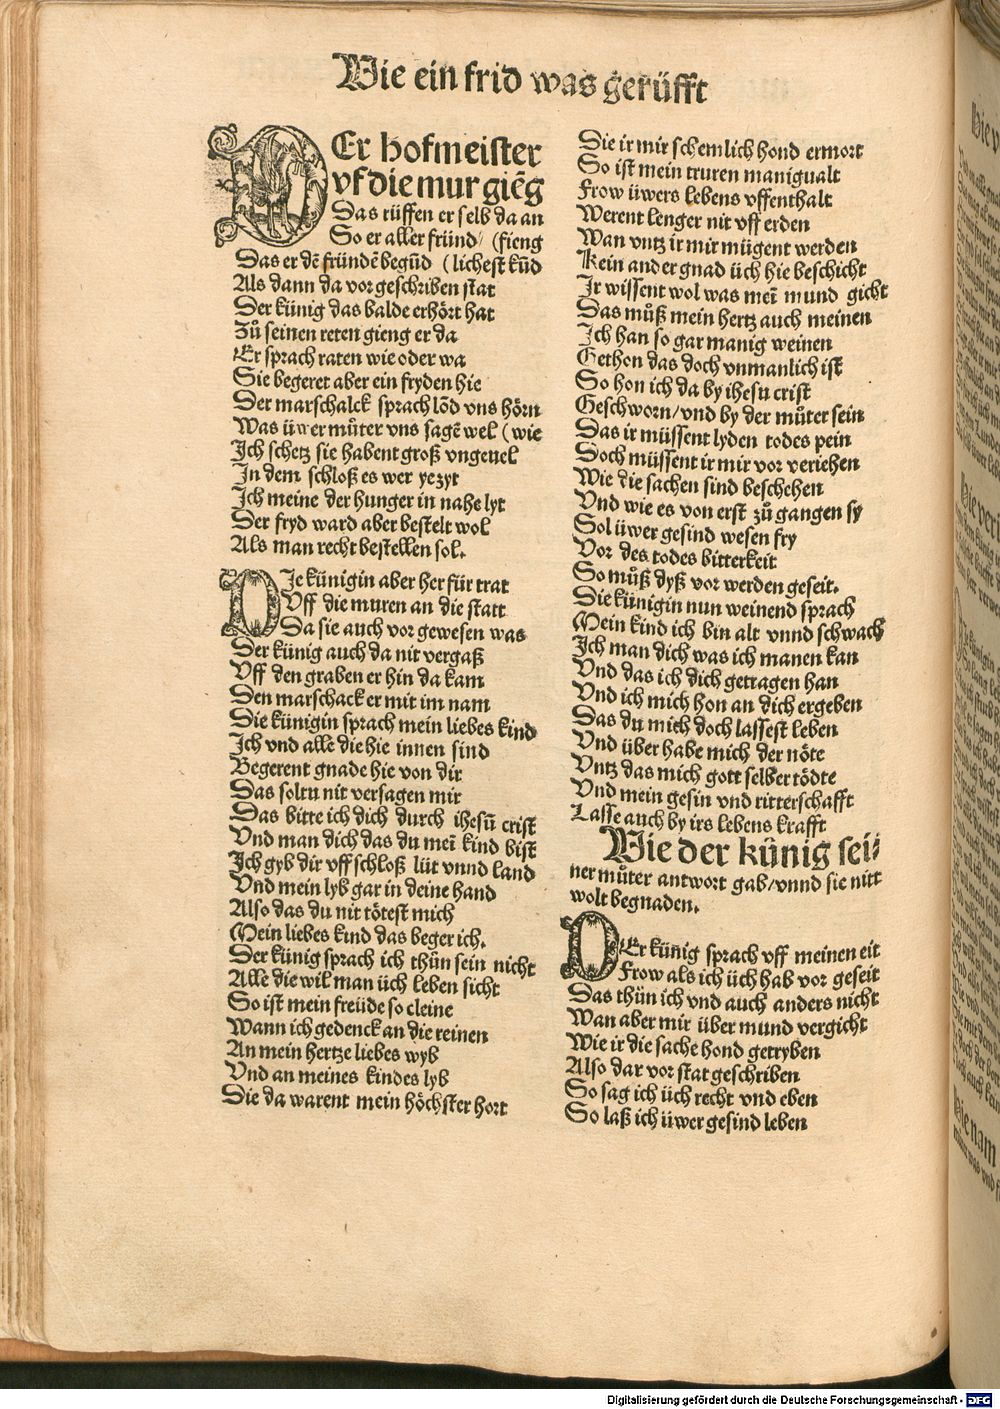 Wie ein frid was gerüfft
DEr hofmeister
vf die mur giēg
Das rüffen er selb da an
So er aller fründ/ (fieng
Das er dē fründē begūd (lichest kūd
Als dann da vor geschriben stat
Der künig das balde erhört hat
Zů seinen reten gieng er da
Er sprach raten wie oder wa
Sie begeret aber ein fryden hie
Der marschalck sprach lōd vns hörn
Was üwer můter vns sagē wel (wie
Ich schetz sie habent groß vngeuel
In dem schloß es wer yezyt
Ich meine der hunger in nahe lyt
Der fryd ward aber bestelt wol
Als man recht bestellen sol.
DIe künigin aber her für trat
Vff die muren an die statt
Da sie auch vor gewesen was
Der künig auch da nit vergaß
Vff den graben er hin da kam
Den marschack er mit im nam
Die künigin sprach mein liebes kind
Ich vnd alle die hie innen sind
Begerent gnade hie von dir
Das soltu nit versagen mir
Das bitte ich dich durch ihesū crist
Vnd man dich das du meī kind bist
Ich gyb dir vff schloß lüt vnnd land
Vnd mein lyb gar in deine hand
Also das du nit tötest mich
Mein liebes kind das beger ich.
Der künig sprach ich thůn sein nicht
Alle die wil man üch leben sicht
So ist mein freüde so cleine
Wann ich gedenck an die reinen
An mein hertze liebes wyb
Vnd an meines kindes lyb
Die da warent mein höchster hort
Die ir mir schemlich hond ermort
So ist mein truren manigualt
Frow üwers lebens vffenthalt
Werent lenger nit vff erden
Wan vntz ir mir mügent werden
Kein ander gnad üch hie beschicht
Ir wissent wol was meī mund gicht
Das můß mein hertz auch meinen
Ich han so gar manig weinen
Gethon das doch vnmanlich ist
So hon ich da by ihesu crist
Geschworn/vnd by der můter sein
Das ir müssent lyden todes pein
Doch müssent ir mir vor veriehen
Wie die sachen sind beschehen
Vnd wie es von erst zů gangen sy
Sol üwer gesind wesen fry
Vor des todes bitterkeit
So můß dyß vor werden geseit.
Die künigin nun weinend sprach
Mein kind ich bin alt vnnd schwach
Ich man dich was ich manen kan
Vnd das ich dich getragen han
Vnd ich mich hon an dich ergeben
Das du mich doch lassest leben
Vnd über habe mich der nöte
Vntz das mich gott selber tödte
Vnd mein gesin vnd ritterschafft
Lasse auch by irs lebens krafft
Wie der künig sei⸗
ner můter antwort gab/vnnd sie nitt
wolt begnaden.
DEr künig sprach vff meinen eit
Frow als ich üch hab vor geseit
Das thün ich vnd auch anders nicht
Wan aber mir über mund vergicht
Wie ir die sache hond getryben
Also dar vor stat geschriben
So sag ich üch recht vnd eben
So laß ich üwer gesind leben
Digitalisierung gefördert durch die Deutsche Forschungsgemeinschaft - DFG